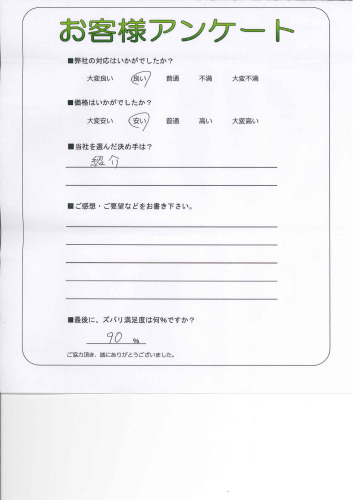 お客様アンケート
■弊社の対応はいかがでしたか？
大変良い 良い 普通 不満 大変不満
■価格はいかがでしたか？
大変安い 安い 普通 高い 大変高い
■当社を選んだ決め手は？
紹介
■ご感想・ご要望などをお書き下さい。
■最後に、ズバリ満足度は何%ですか？
90 %
ご協力頂き、誠にありがとうございました。